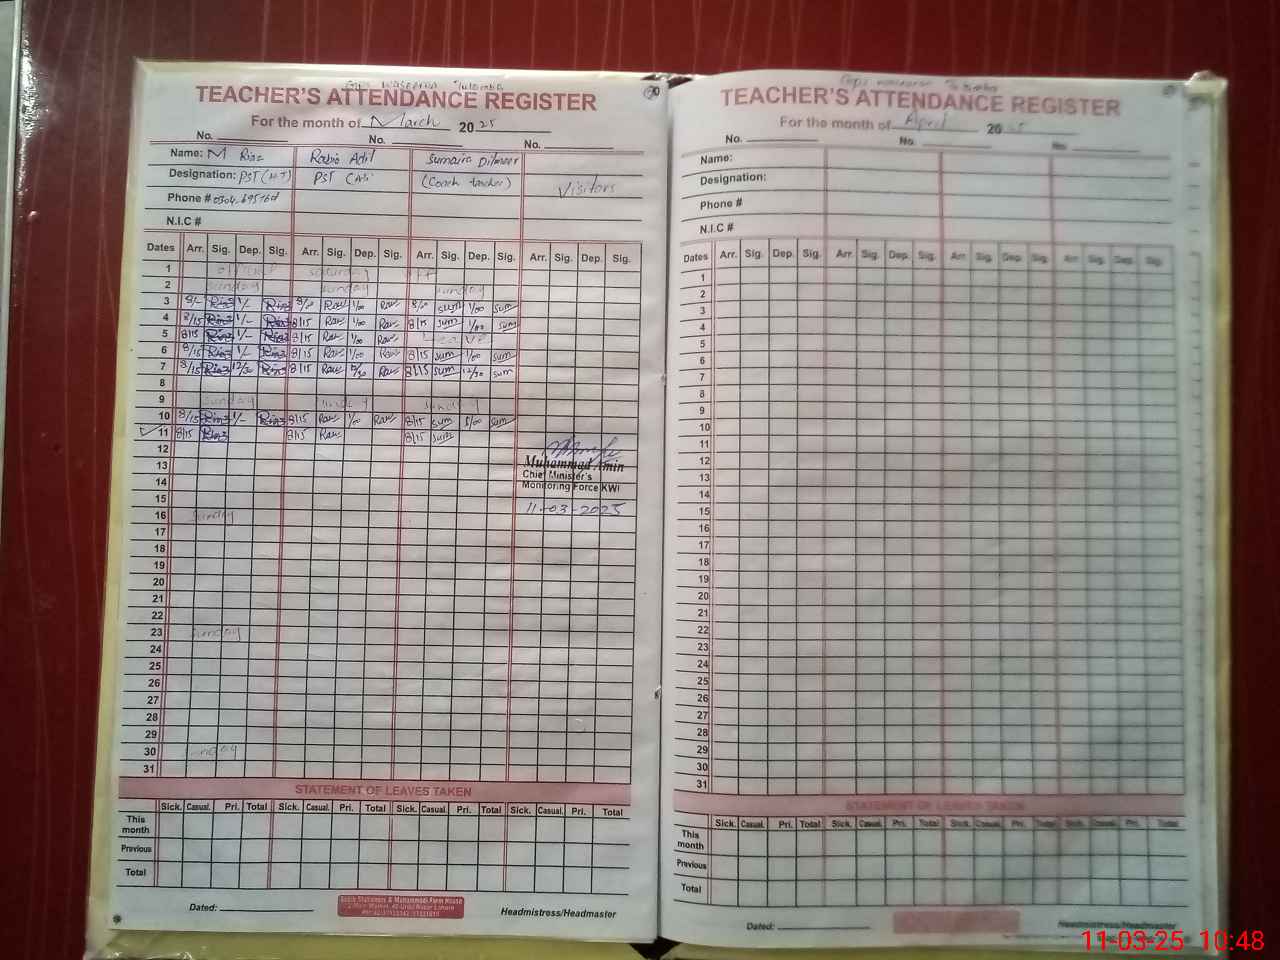 TEACHER'S ATTENDANCE REGISTER
For the month of March 2025
No. No. No.
Name: M Riaz Rabia Adil Sumaira Dilmeer
Designation: PST (HT) PST (Coach teacher) Visitors
Phone #
N.I.C #
Dates Arr. Sig. Dep. Sig. Arr. Sig. Dep. Sig. Arr. Sig. Dep. Sig. Arr. Sig. Dep. Sig.
1 saturday off
2 Sunday Sunday Sunday
3 8/- Riaz 1/- Riaz Rab 1/00 Rab sum 1/00 sum
4 8/15 Riaz 1/- Riaz 8/15 Rab 1/00 Rab 8/15 sum 1/00 sum
5 8/15 Riaz 1/- Riaz 8/15 Rab 1/00 Rab Leave
6 8/15 Riaz 1/- Riaz 8/15 Rab 1/00 Rab 8/15 sum 1/00 sum
7 8/15 Riaz 12/30 Riaz 8/15 Rab 12/30 Rab 8/15 sum 12/30 sum
8
9 Sunday Sunday Sunday
10 8/15 Riaz 1/- Riaz 8/15 Rab 1/00 Rab 8/15 sum 1/00 sum
11 8/15 Riaz 8/15 Rab 8/15 sum
12
13 Muhammad Amin
Chief Minister's
14 Monitoring Force KWl
15 11-03-2025
16 Sunday
17
18
19
20
21
22
23 Sunday
24
25
26
27
28
29
30 Sunday
31
STATEMENT OF LEAVES TAKEN
Sick. Casual. Pri. Total Sick. Casual. Pri. Total Sick. Casual. Pri. Total Sick. Casual. Pri. Total
This month
Previous
Total
Dated:
Headmistress/Headmaster
TEACHER'S ATTENDANCE REGISTER
For the month of April 2025
No. No. No.
Name:
Designation:
Phone #
N.I.C #
Dates Arr. Sig. Dep. Sig. Arr. Sig. Dep. Sig. Arr. Sig. Dep. Sig. Arr. Sig. Dep. Sig.
1
2
3
4
5
6
7
8
9
10
11
12
13
14
15
16
17
18
19
20
21
22
23
24
25
26
27
28
29
30
31
STATEMENT OF LEAVES TAKEN
Sick. Casual. Pri. Total Sick. Casual. Pri. Total Sick. Casual. Pri. Total Sick. Casual. Pri. Total
This month
Previous
Total
Dated:
Headmistress/Headmaster
11-03-25 10:48